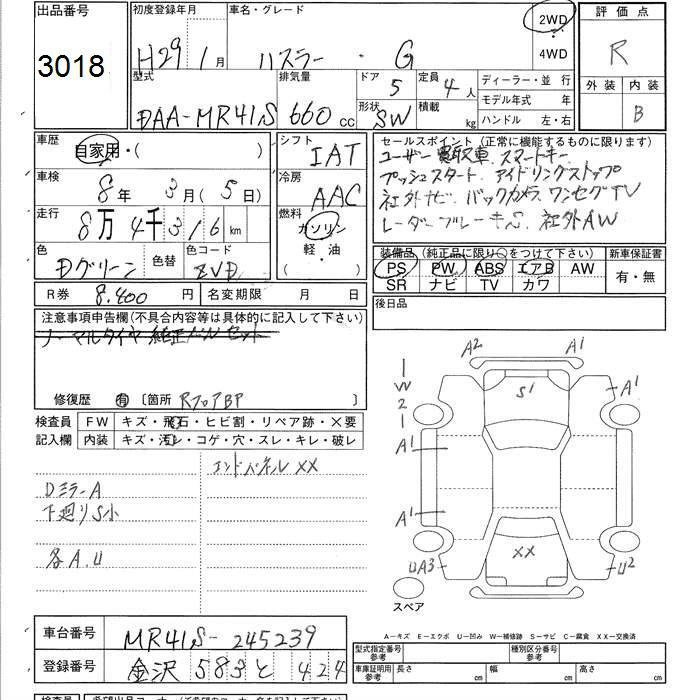 出品番号 初度登録年月 車名・グレード 2WD ・ 4WD 評価点
3018 H29年 1月 ハスラー ・ G R
型式 排気量 ドア 5 定員 4人 ディーラー・並 行 外装 内装
DAA-MR41S 660cc 形状 SW 積載 kg モデル年式 年 B
ハンドル 左・右
車歴 自家用・( ) シフト IAT セールスポイント(正常に機能するものに限ります)
ユーザー買取車、スマートキー
車検 8年 3月(5日) 冷房 AAC プッシュスタート、アイドリングストップ
社外ナビ、バックカメラ、ワンセグTV
走行 8万4千316km 燃料 ガソリン 軽・油 ( ) レーダーブレーキS、社外AW
色 Dグリーン 色替 色コード ZVD 装備品(純正品に限り○をつけて下さい) 新車保証書
PS PW ABS エアB AW 有・無
SR ナビ TV カワ
R券 8,400円 名変期限 月 日 後日品
注意事項申告欄(不具合内容等は具体的に記入して下さい)
ノーマルタイヤ純正ベルセット
修復歴 有 〔箇所 RフロアBP 〕
A2 A1
1
W
2
1
S1 A1
A1
A1
XX
UA3 U2
スペア
検査員 FW キズ・飛石・ヒビ割・リペア跡・×要
記入欄 内装 キズ・汚レ・コゲ・穴・スレ・キレ・破レ
エンドパネルXX
Dミラー A
下廻りS小
各A.U
A-キズ E-エクボ U-凹み W-補修跡 S-サビ C-腐食 XX-交換済
車台番号 MR41S-245239
型式指定番号 参考 種別区分番号 参考
登録番号 金沢 583 と 424
車庫証明用 参考 長さ cm 幅 cm 高さ cm